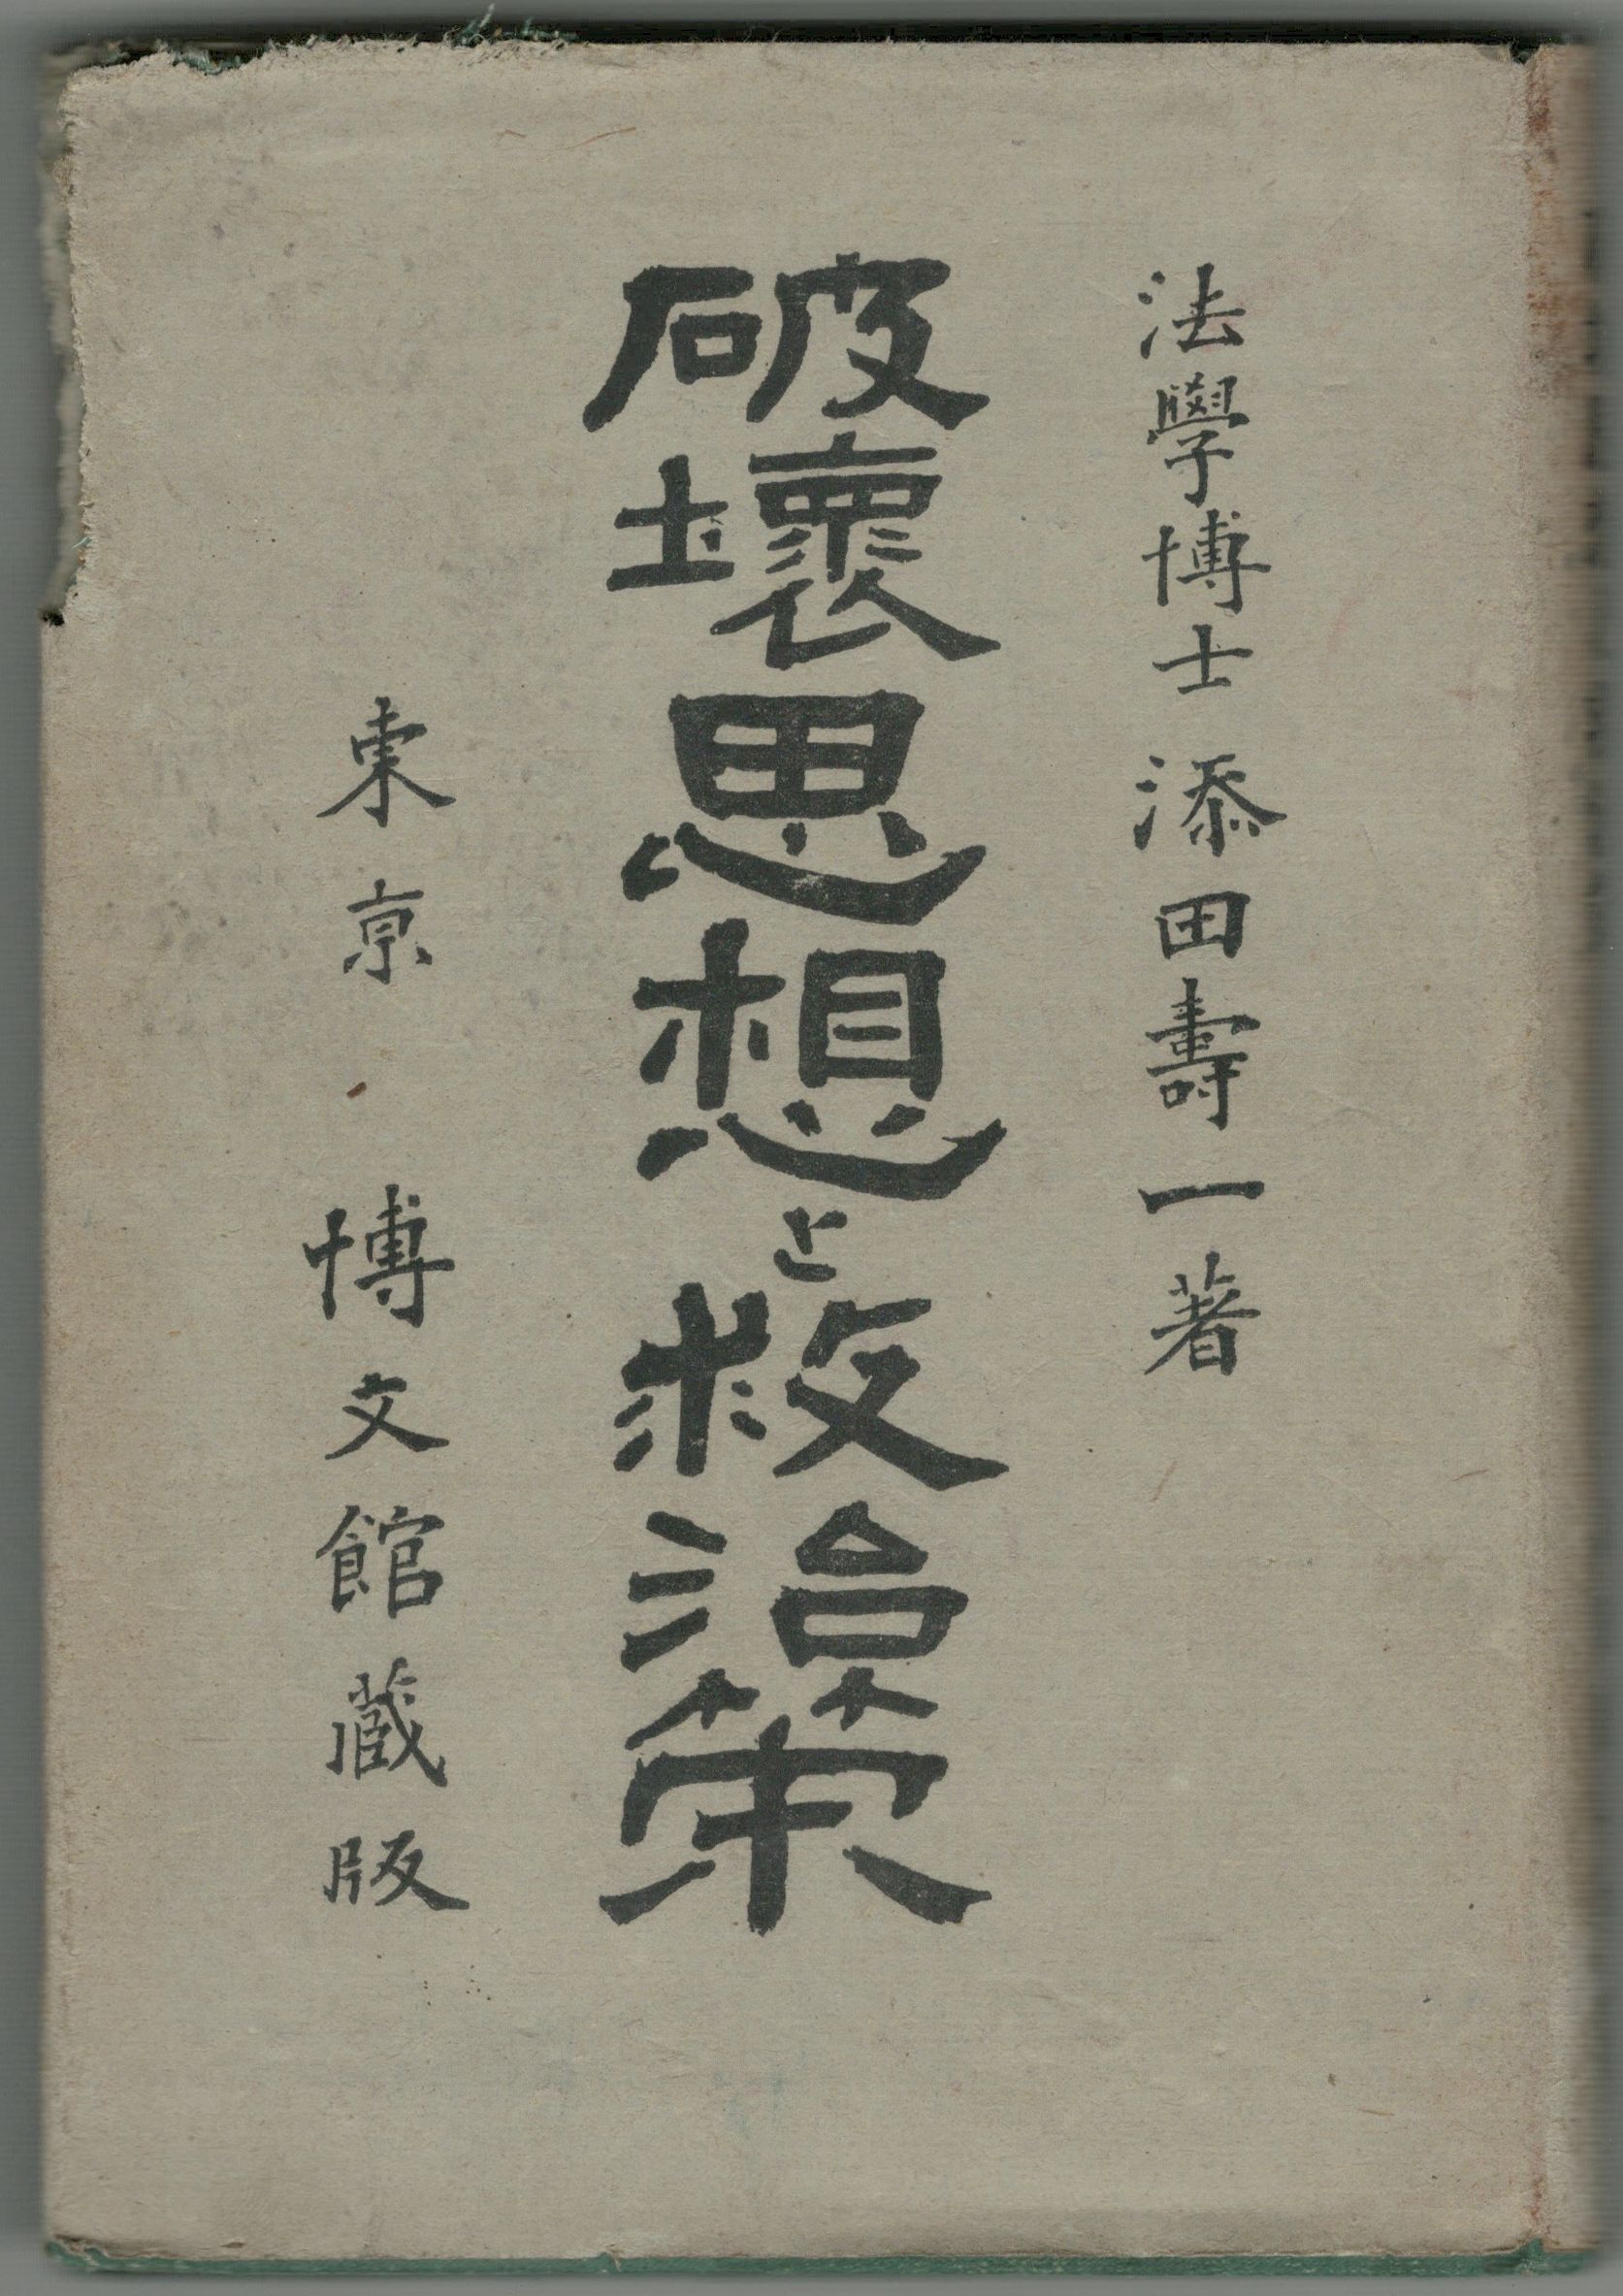 法學博士 添田壽一著
破壞思想と救治策
東京 博文館蔵版